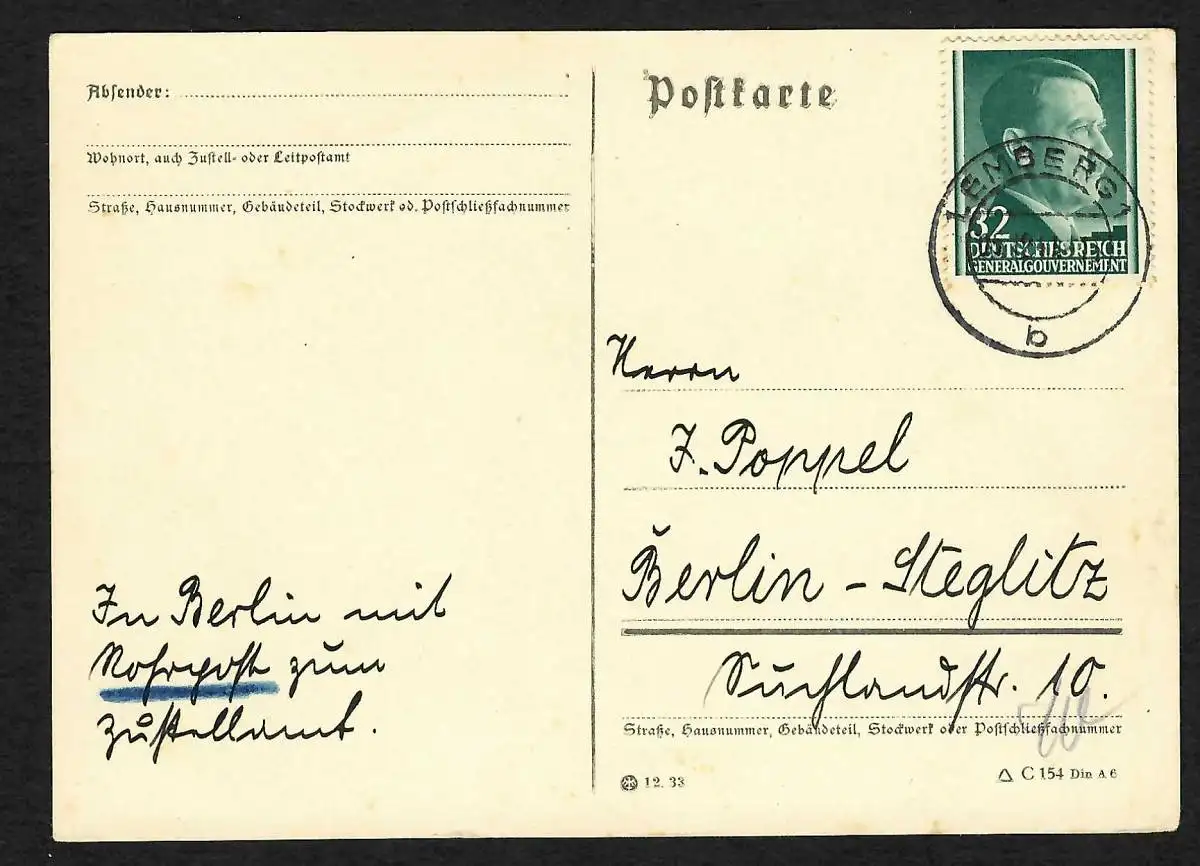 Absender:
Wohnort, auch Zustell- oder Leitpostamt
Straße, Hausnummer, Gebäudeteil, Stockwerk od. Postschließfachnummer
In Berlin mit
Rohrpost zum
Zustellamt.
Postkarte
LEMBERG 1
b
32
DEUTSCHES REICH
GENERALGOUVERNEMENT
Herrn
J. Poppel
Berlin - Steglitz
Suchlandstr. 10.
Straße, Hausnummer, Gebäudeteil, Stockwerk oder Postschließfachnummer
12. 33
C 154 Din A 6